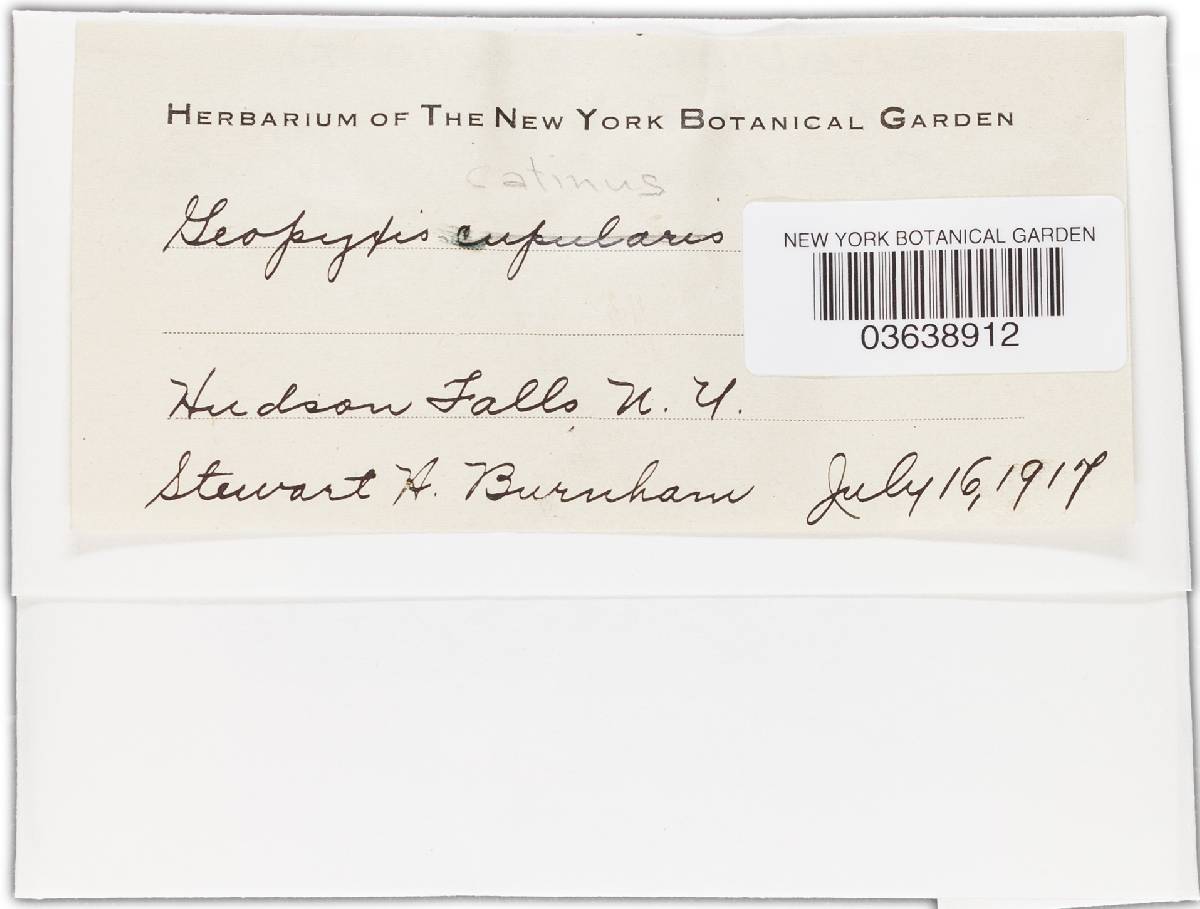 HERBARIUM OF THE NEW YORK BOTANICAL GARDEN
catinus
Geopyxis cupularis
NEW YORK BOTANICAL GARDEN
03638912
Hudson Falls, N. Y.
Stewart H. Burnham July 16, 1917